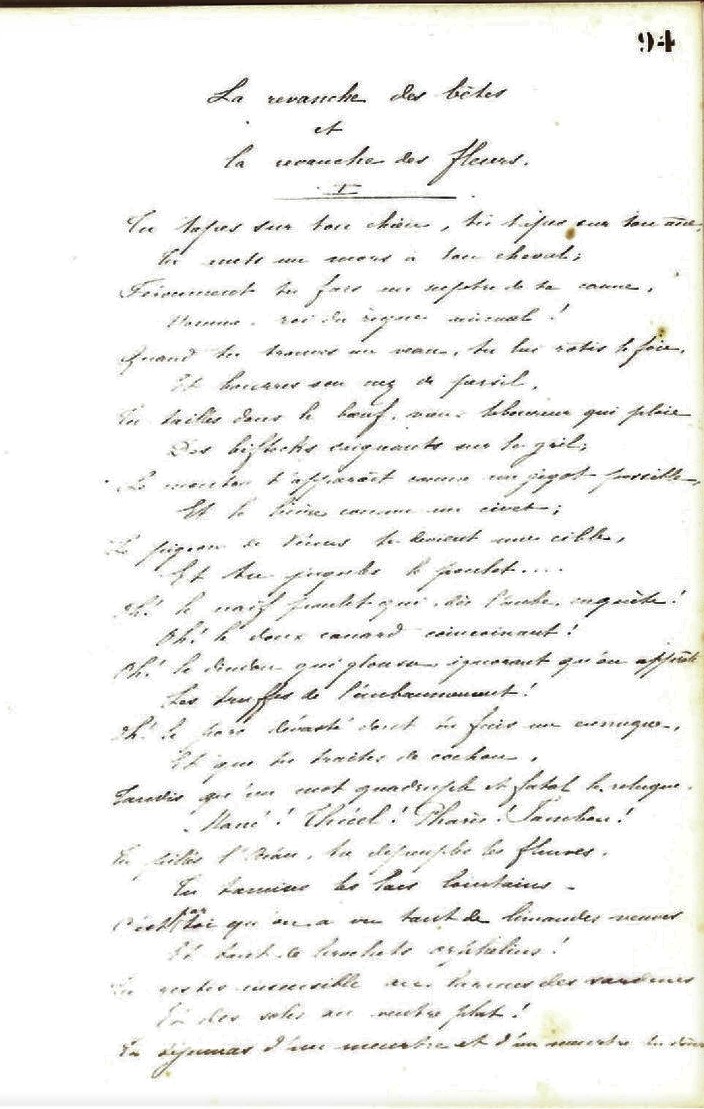 94
La revanche des bêtes
et
la revanche des fleurs.
I
Tu tapes sur ton chien, tu tapes sur ton âne,
Tu mets un mors à ton cheval;
Férocement tu fais un sceptre de ta canne,
Homme, roi du règne animal!
Quand tu trouves un veau, tu lui rôtis le foie,
Et bourres son nez de persil,
Tu tailles dans le bœuf, vieux laboureur qui ploie
Des biftecks saignants sur le gril;
Le mouton t'apparaît comme un gigot possible,
Et le lièvre comme un civet;
Le pigeon de Vénus te devient une cible,
Et tu jugules le poulet....
Oh! le naïf poulet qui, dès l'aube, caquète!
Oh! le doux canard coincoinant!
Oh! le dindon qui glousse, ignorant qu'on apprête
Les truffes de l'embaumement!
Oh! le porc dévasté dont tu fais un eunuque,
Et que tu traites de cochon,
Tandis qu'un mot quadruple et fatal le reluque.
Mané! Thécel! Pharès! Jambon!
Tu pilles l'Océan, tu dépeuples les fleuves,
Tu tamises les lacs lointains.
C'est par toi qu'on a vu tant de limandes veuves
Et tant de brochets orphelins!
Tu restes insensible aux larmes des sardines
Et des soles au ventre plat!
Tu déjeunas d'un meurtre et d'un meurtre tu